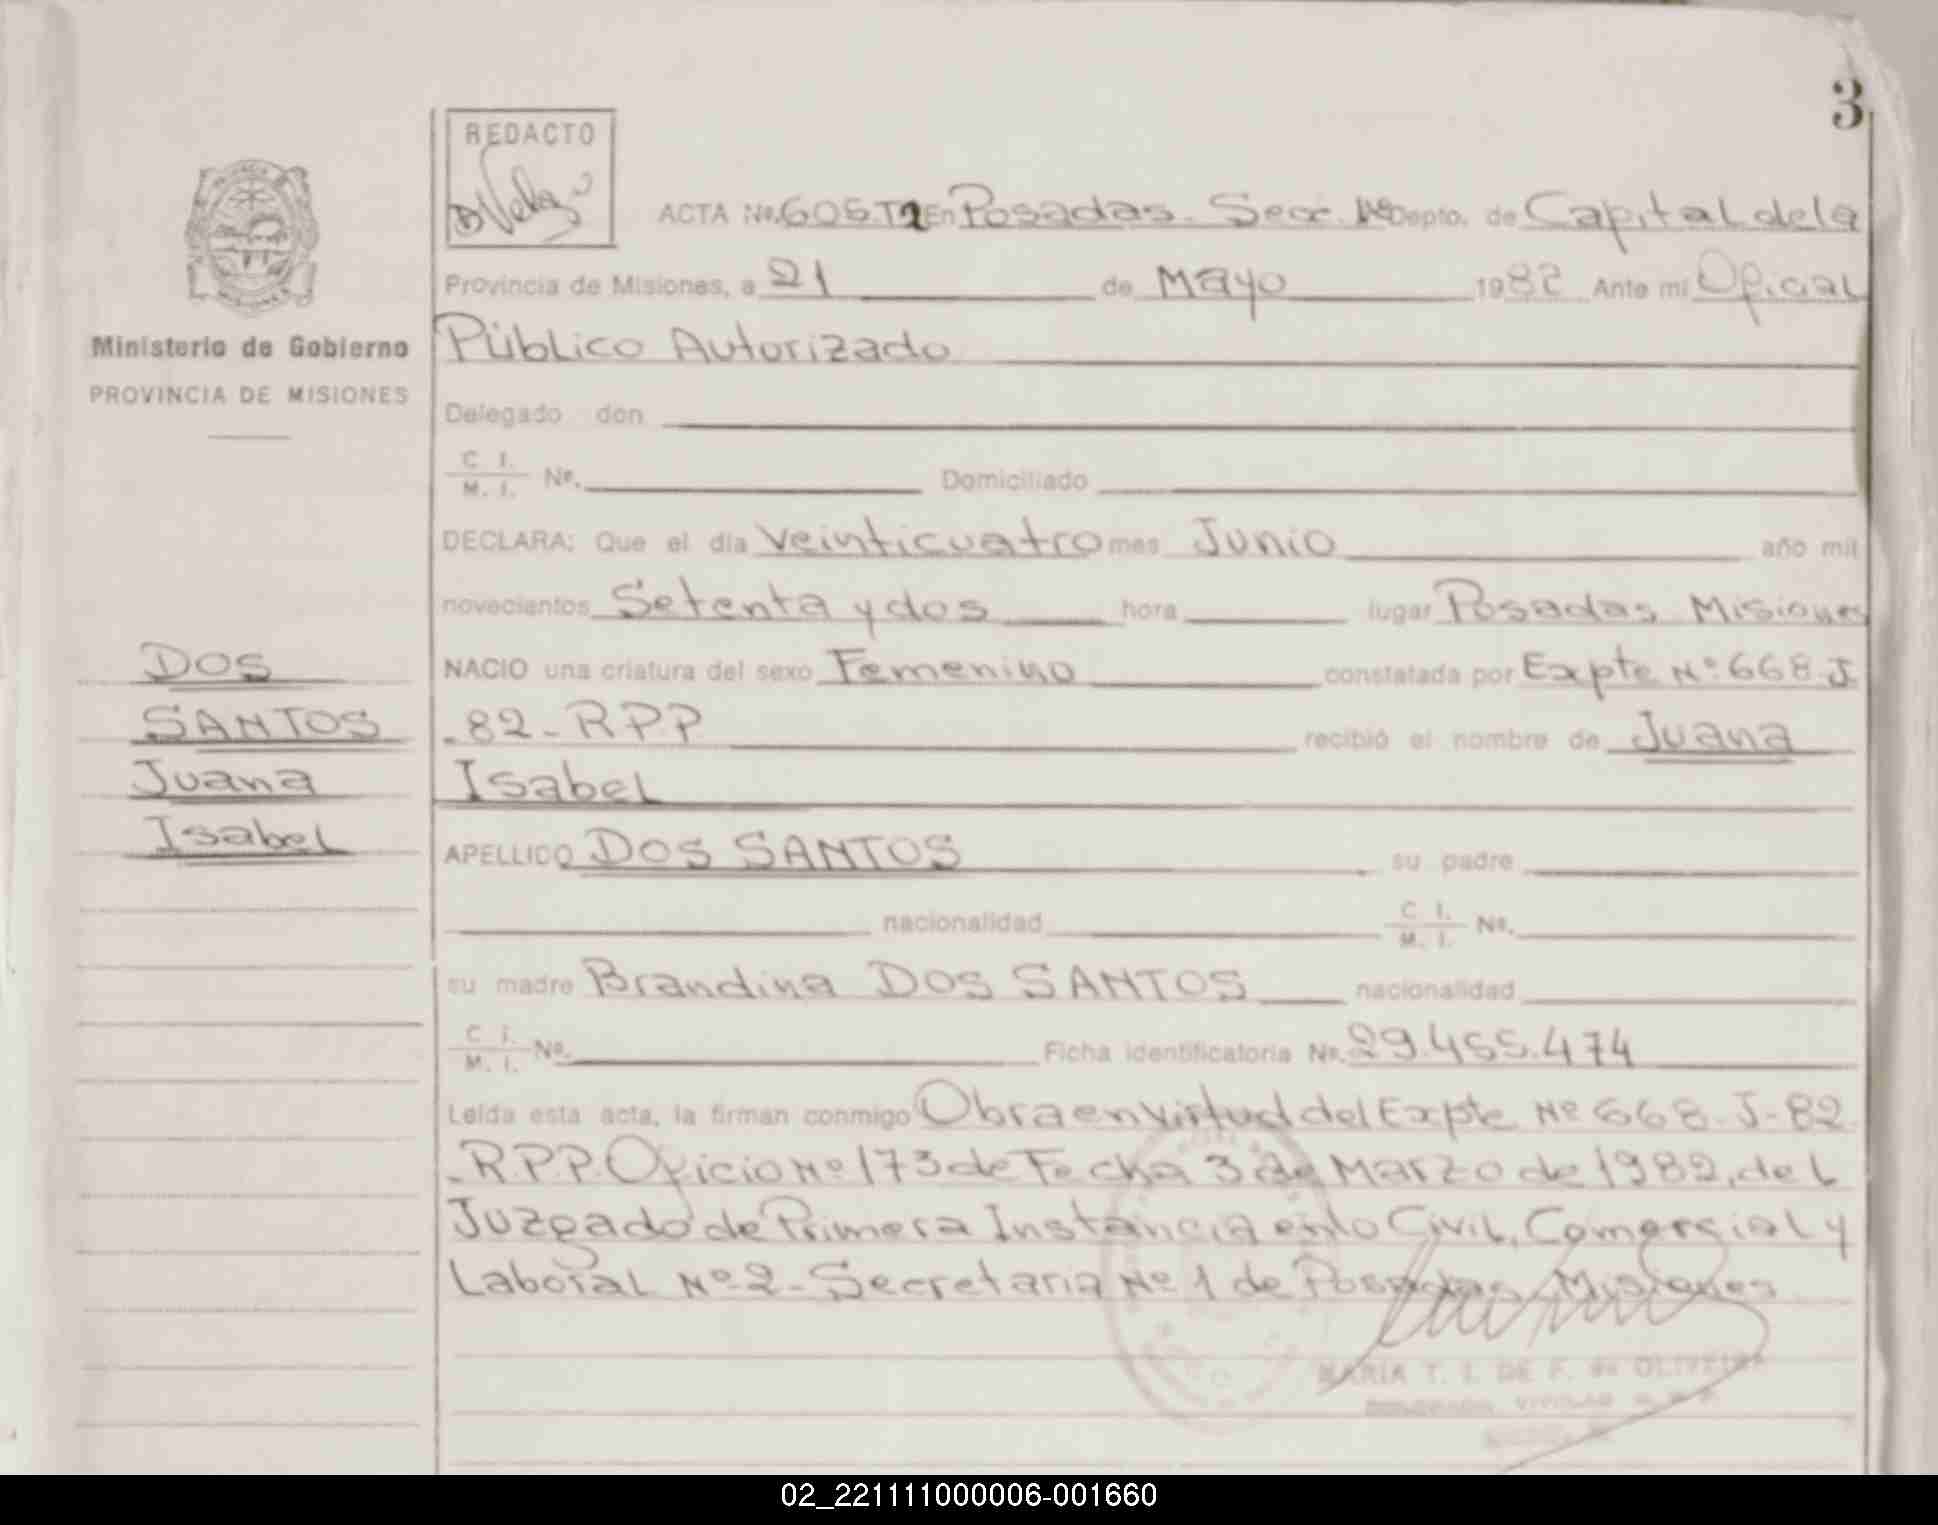 3
REDACTO
ACTA Nº. 605.T2 En Posadas. Secc. 1ª Depto. de Capital de la
Provincia de Misiones, a 21 de Mayo 1982 Ante mi Oficial
Ministerio de Gobierno
Público Autorizado
PROVINCIA DE MISIONES
Delegado don
C. I.
M. I. Nº. Domiciliado
DECLARA: Que el día Veinticuatro mes Junio año mil
novecientos Setenta y dos hora lugar Posadas Misiones
DOS
NACIO una criatura del sexo Femenino constatada por Expte Nº 668-J
SANTOS
-82-R.P.P recibió el nombre de Juana
Juana
Isabel
Isabel
APELLIDO DOS SANTOS su padre
nacionalidad C. I.
M. I. Nº.
su madre Brandina DOS SANTOS nacionalidad
C. I.
M. I. Nº. Ficha identificatoria Nº. 29.455.474
Leída esta acta, la firman conmigo Obra en virtud del Expte Nº 668-J-82
-R.P.P. Oficio Nº 173 de Fecha 3 de Marzo de 1982, del
Juzgado de Primera Instancia en lo Civil, Comercial y
Laboral Nº 2 - Secretaria Nº 1 de Posadas, Misiones
MARIA T. I. DE F. de OLIVEIRA
02_221111000006-001660